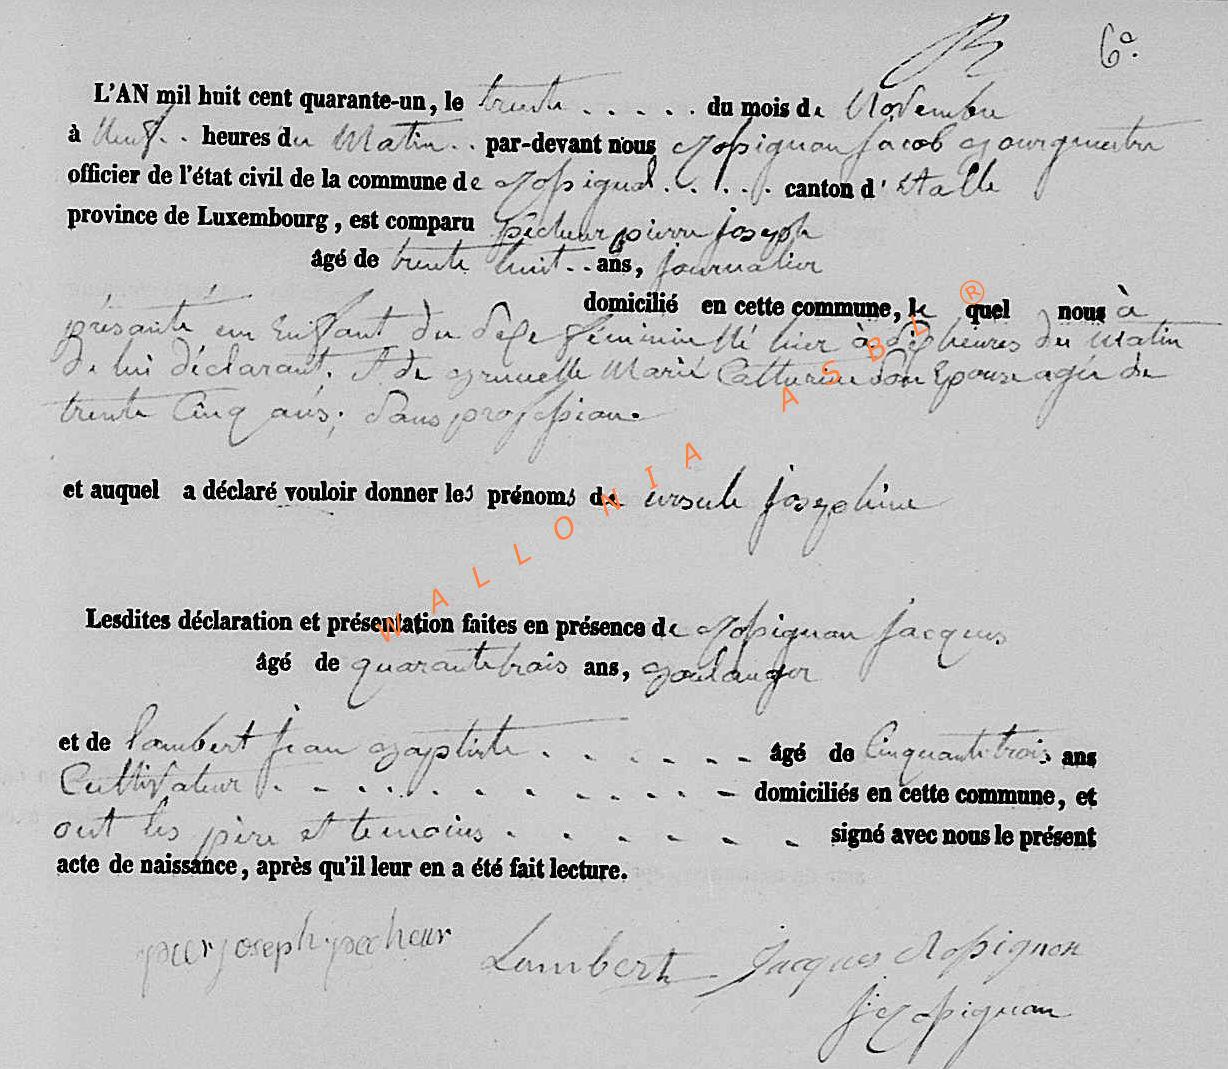 6°.
L'AN mil huit cent quarante-un, le trente . . . . . du mois de Novembre
à Neuf . . heures du Matin . . par-devant nous Rossignon Jacob Bourgmestre
officier de l'état civil de la commune de Rossignol . . . . . canton d'Etalle
province de Luxembourg, est comparu pécheur pierre joseph
âgé de trente huit . . ans, journalier
domicilié en cette commune, le quel nous à
présanté un Enfant du Sexe féminin Né hier à dix heures du Matin
de lui déclarant. Et de Marié Catherine son Epouse agée de
trente Cinq ans; Sans profession.
et auquel a déclaré vouloir donner les prénoms de ursule josephine
Lesdites déclaration et présentation faites en présence de Rossignon Jacques
âgé de quarante trois ans, Boulanger
et de Lambert Jean Baptiste . . . . . . – âgé de Cinquante trois ans
Cultivateur . . . . . . . . . . . . – domiciliés en cette commune, et
ont les père et temoins . . . . . . signé avec nous le présent
acte de naissance, après qu'il leur en a été fait lecture.
pier joseph pecheur Lambert Jacques Rossignon
J Rossignon
WALLONIA ASBL ®